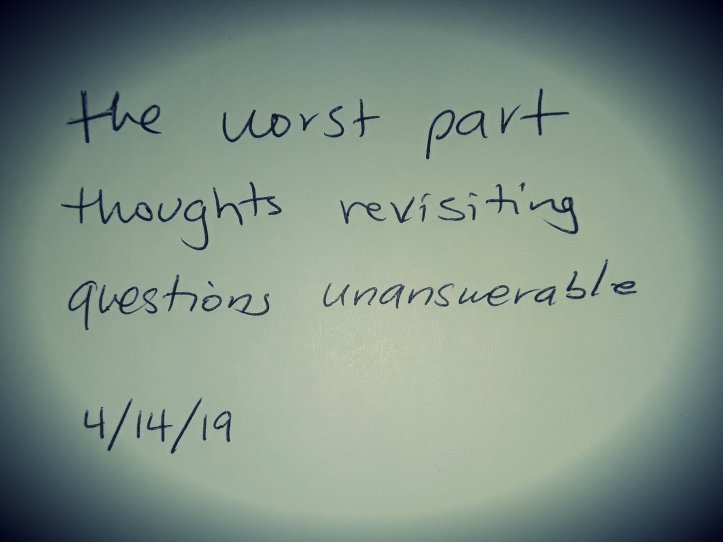 the worst part
thoughts revisiting
questions unanswerable
4/14/19